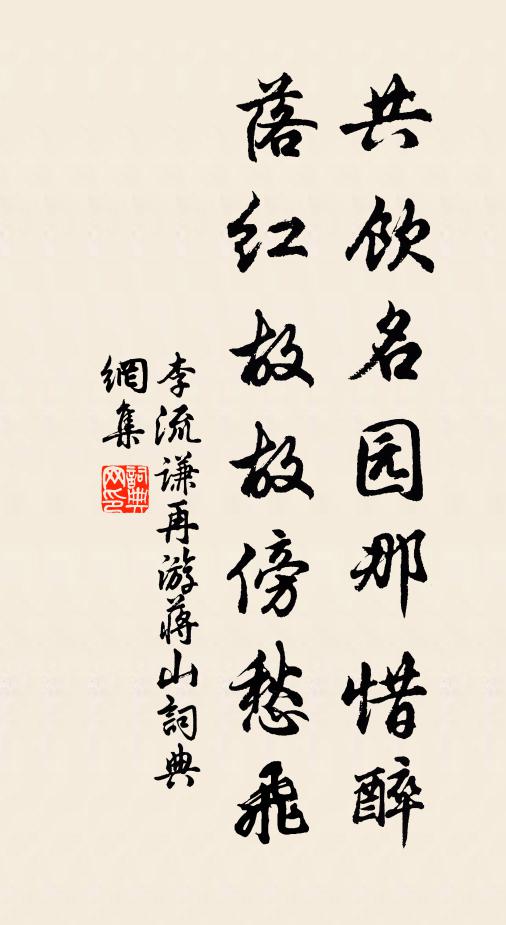 共饮名园那惜醉
落红故故傍愁飛
李流谦再游蒋山詞典
網集
詞典
网印